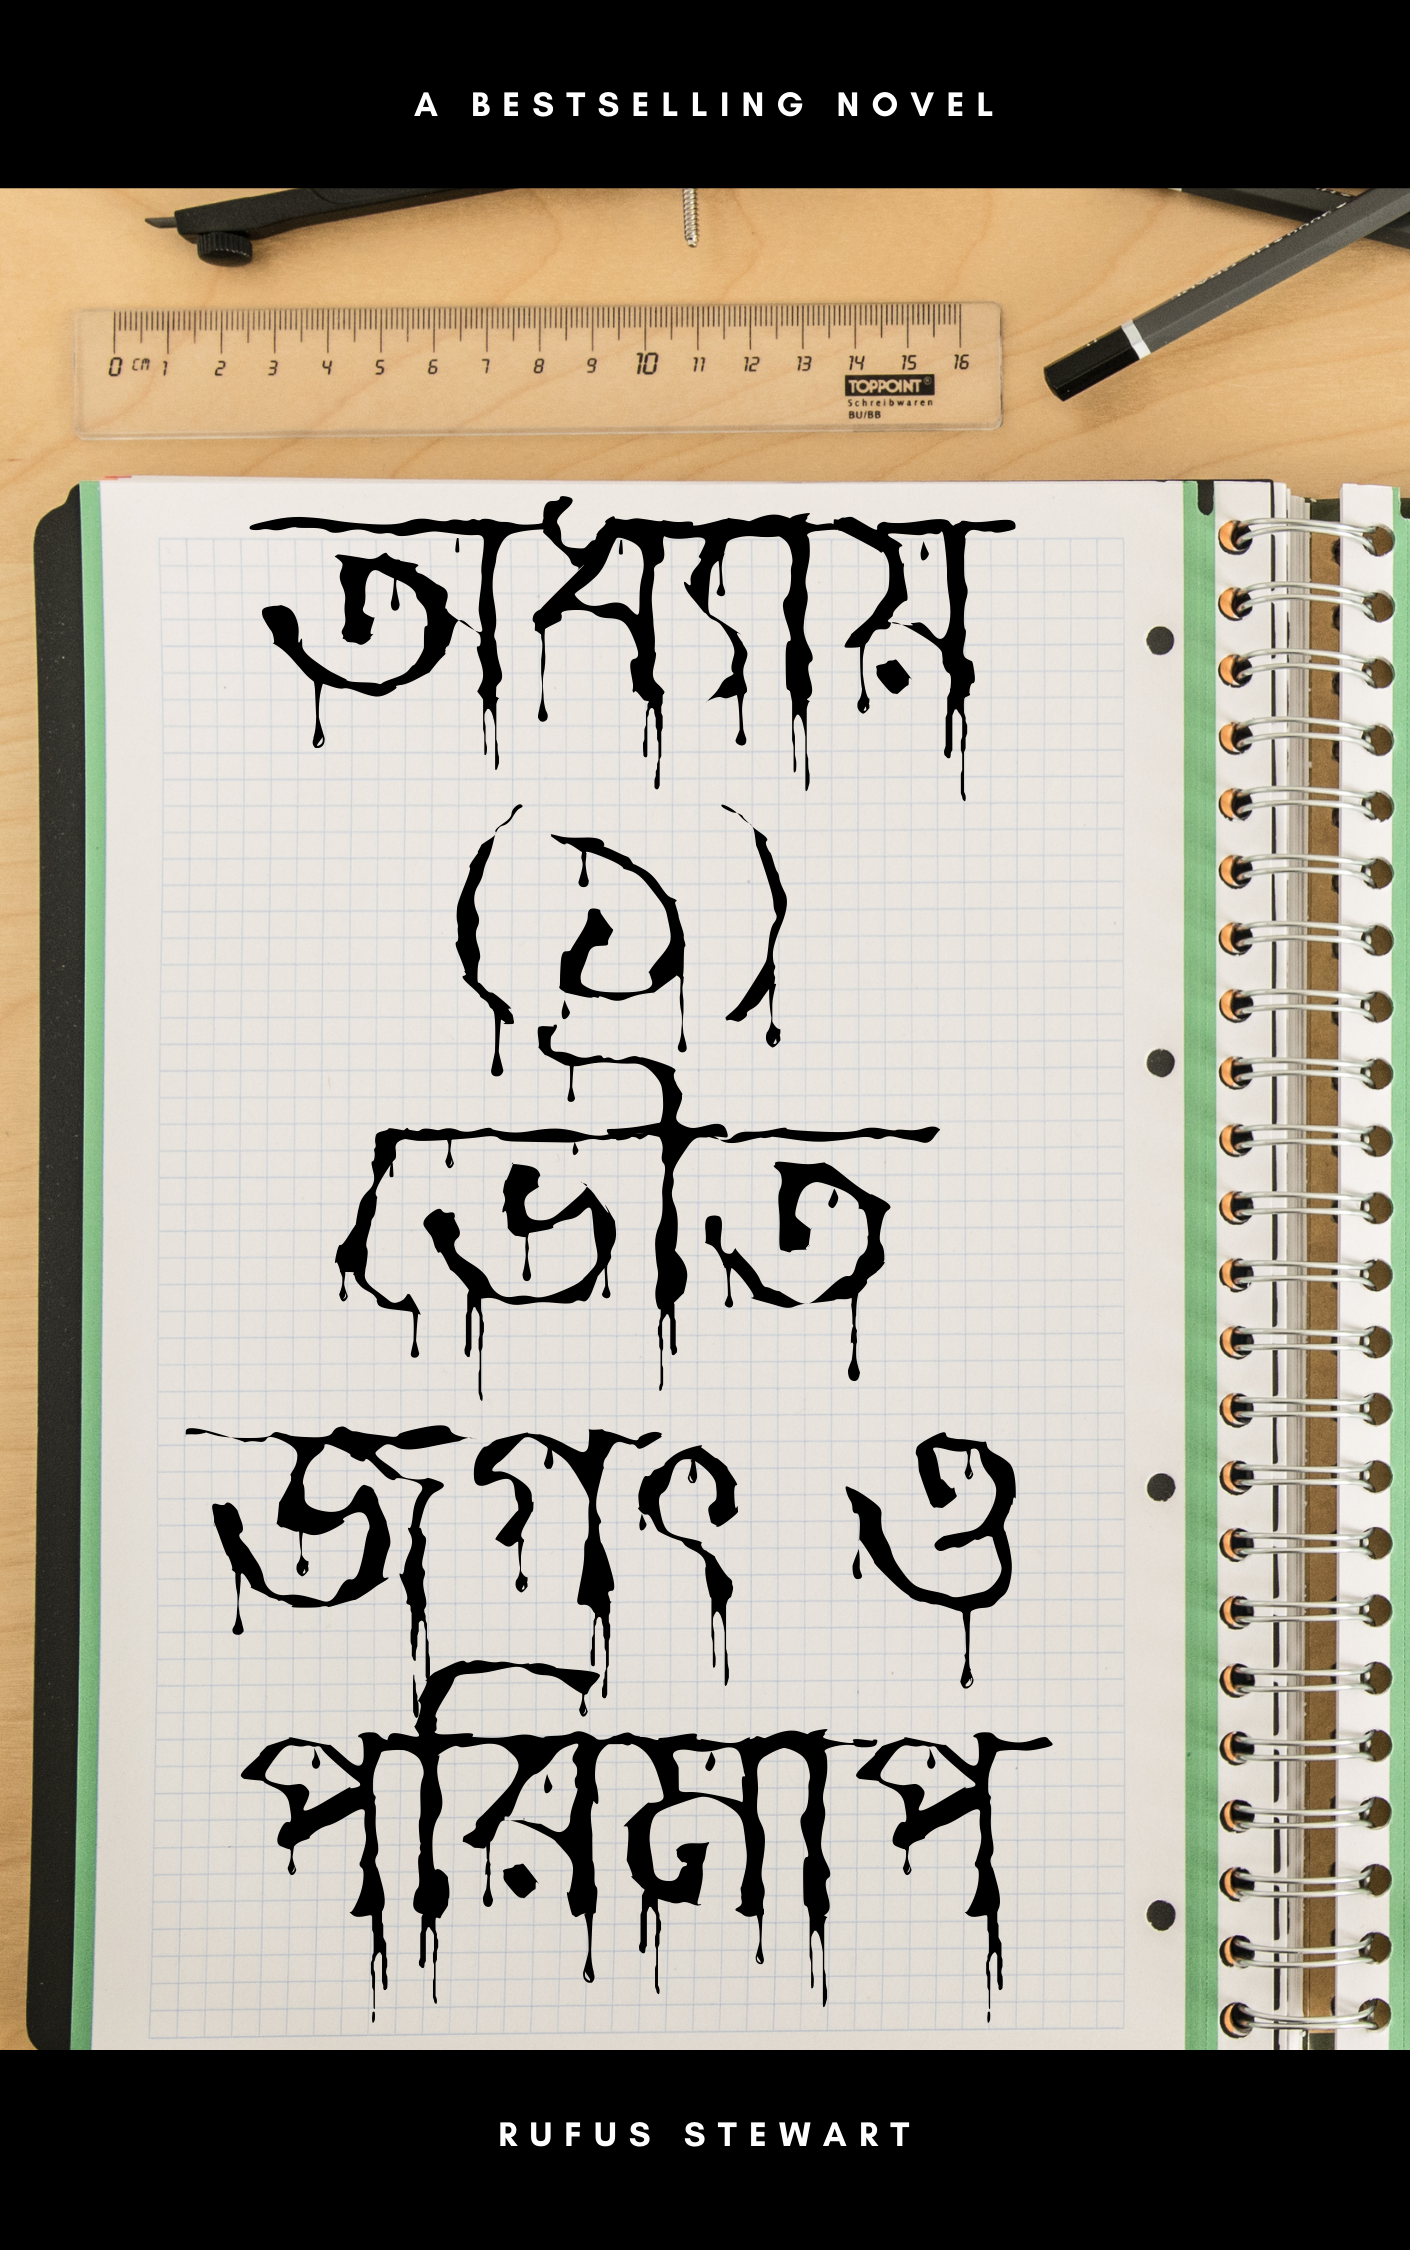 A BESTSELLING NOVEL
0 CM 1 2 3 4 5 6 7 8 9 10 11 12 13 14 15 16
TOPPOINT®
Schreibwaren
BU/BB
অধ্যায়
(১)
ভৌত
জগৎ ও
পরিমাপ
RUFUS STEWART